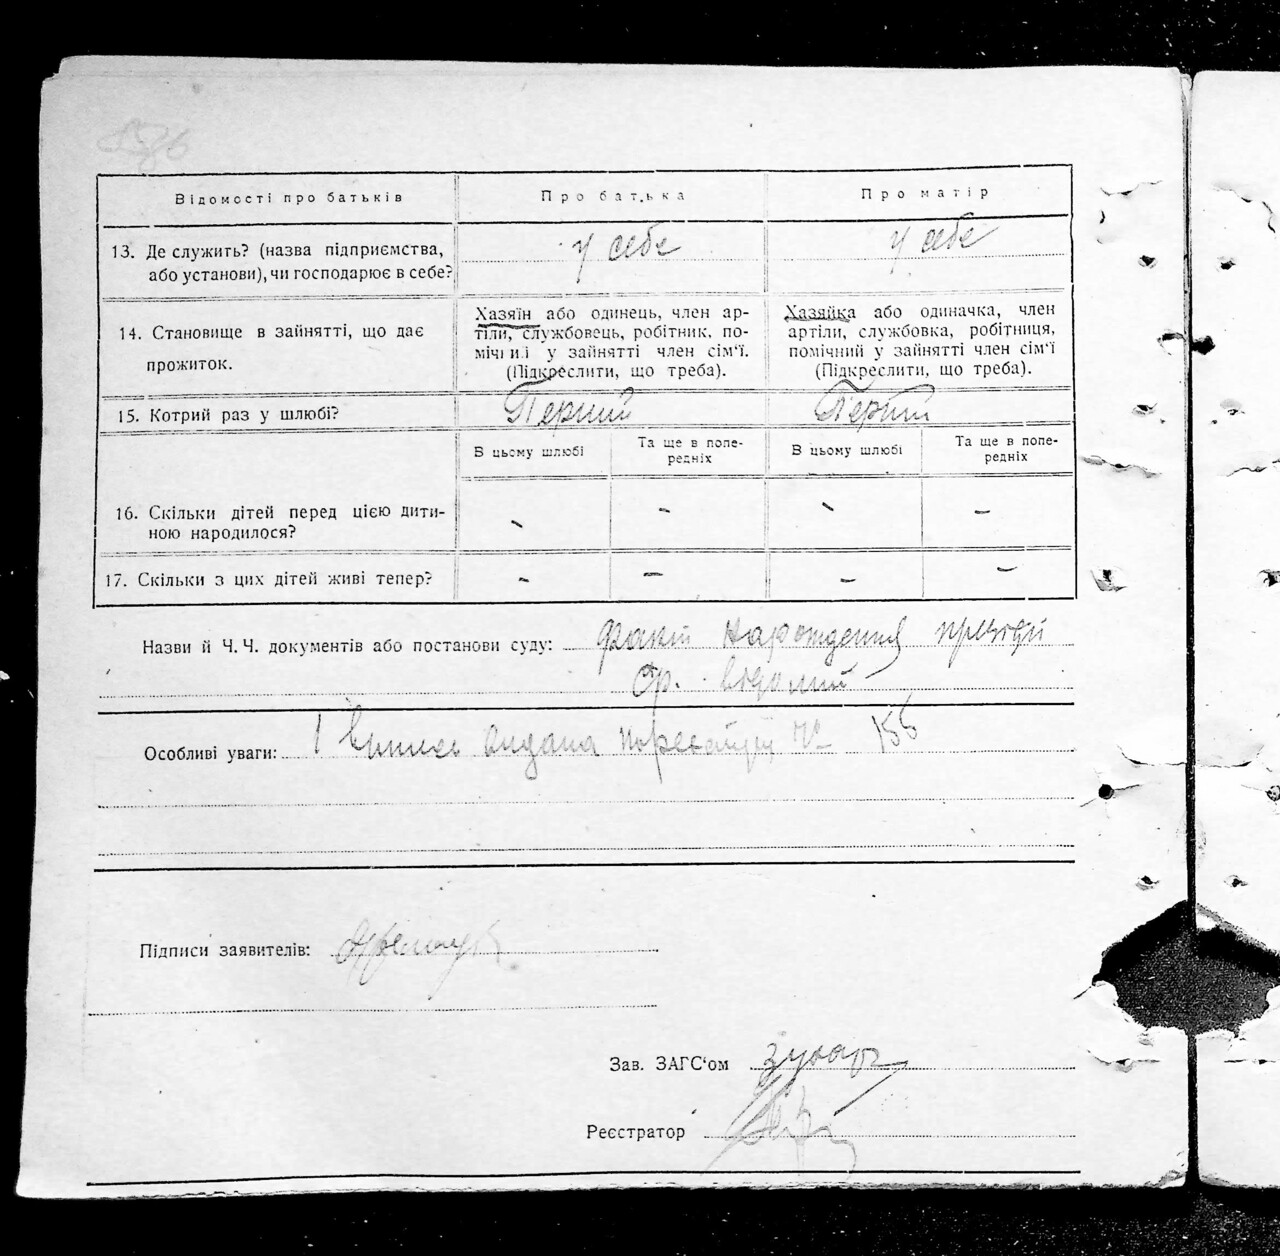 Відомості про батьків
Про батька
Про матір
13. Де служить? (назва підприємства,
або установи), чи господарює в себе?
у себе
у себе
14. Становище в зайнятті, що дає
прожиток.
Хазяїн або одинець, член ар-
тіли, службовець, робітник, по-
мічний у зайнятті член сім'ї.
(Підкреслити, що треба).
Хазяйка або одиначка, член
артіли, службовка, робітниця,
помічний у зайнятті член сім'ї
(Підкреслити, що треба).
15. Котрий раз у шлюбі?
Перший
Перший
В цьому шлюбі
Та ще в попе-
редніх
В цьому шлюбі
Та ще в попе-
редніх
16. Скільки дітей перед цією дити-
ною народилося?
- - - -
17. Скільки з цих дітей живі тепер?
- - - -
Назви й Ч. Ч. документів або постанови суду: факт народження
відомий
Особливі уваги: видана №
Підписи заявителів:
Зав. ЗАГС'ом
Реєстратор